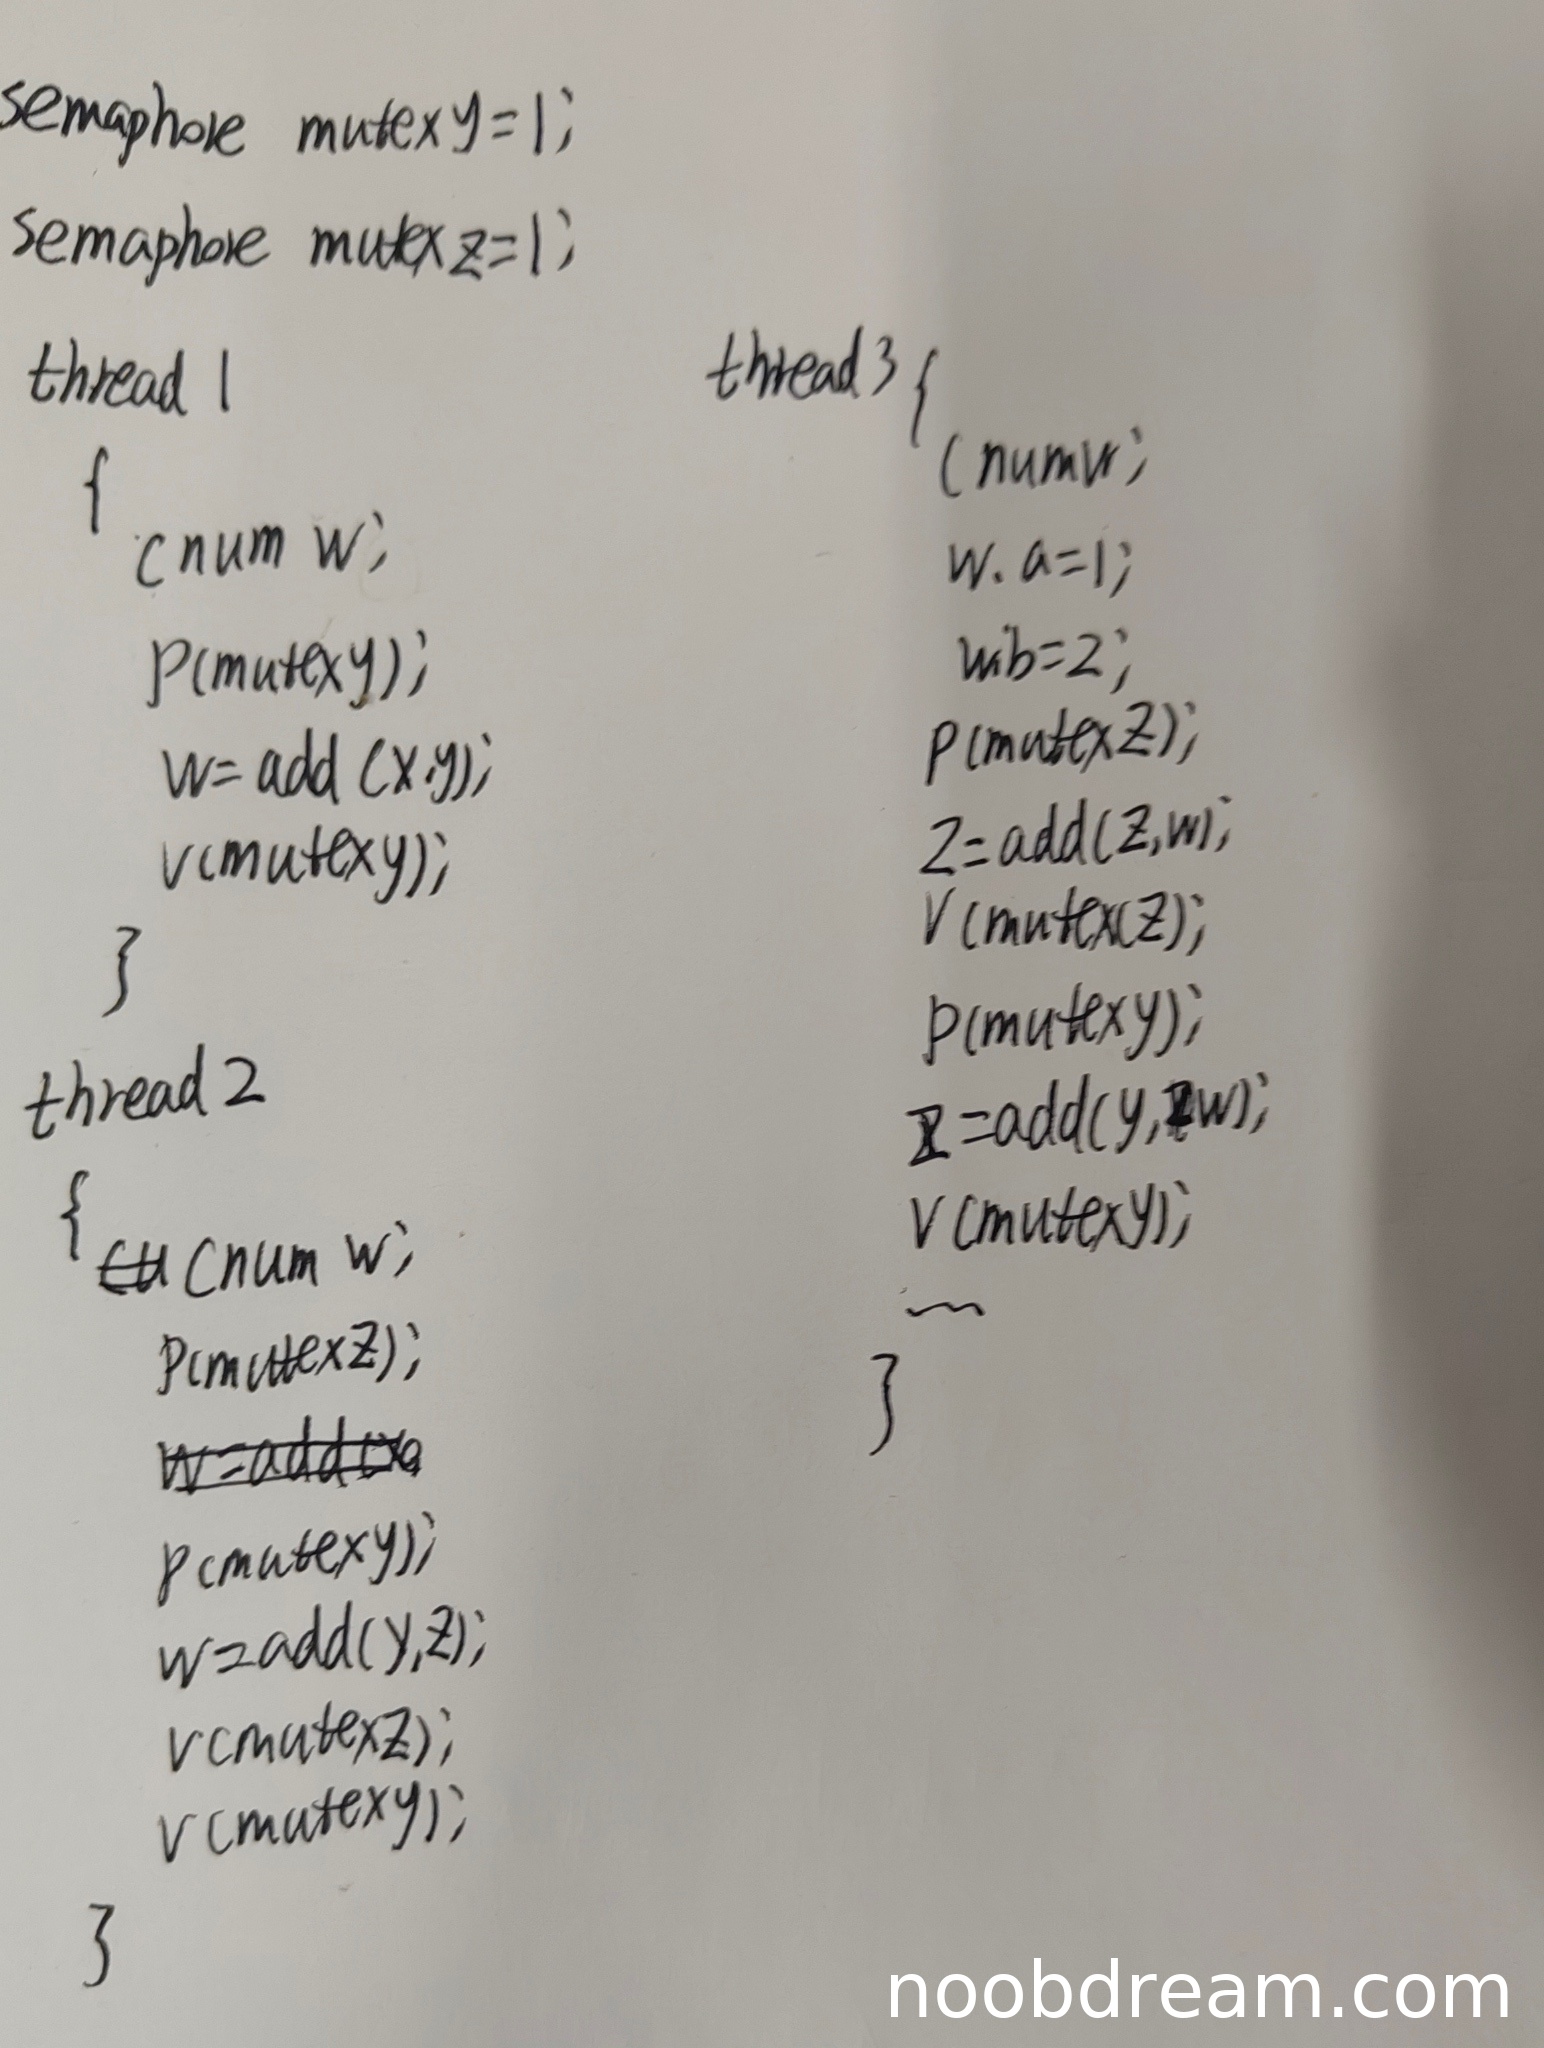 semaphore mutexy=1;
semaphore mutexz=1;
thread 1
{
cnum w;
P(mutexy);
w=add(x.y);
V(mutexy);
}
thread 2
{
Cnum w;
P(mutexz);
w=add(x
P(mutexy);
w=add(y,z);
V(mutexz);
V(mutexy);
}
thread3{
Cnumw;
w.a=1;
w.b=2;
P(mutexz);
z=add(z,w);
V(mutex(z);
P(mutexy);
=add(y,w);
V(mutexy);
}
noobdream.com